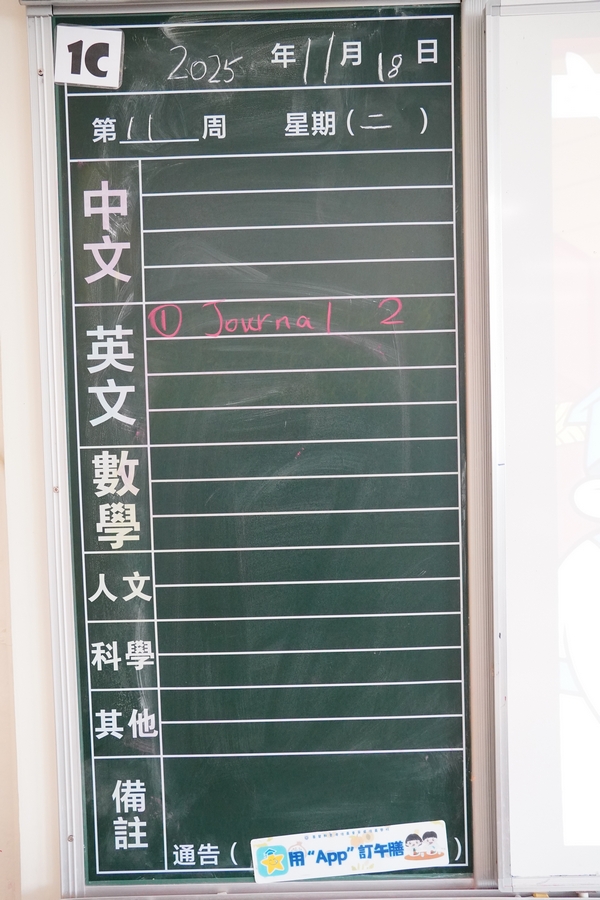 1C
2025 年 11 月 18 日
第 11 周 星期 (二)
中文
① Journal 2
英文
數學
人文
科學
其他
備註
通告 ( )
用 "App" 訂午膳